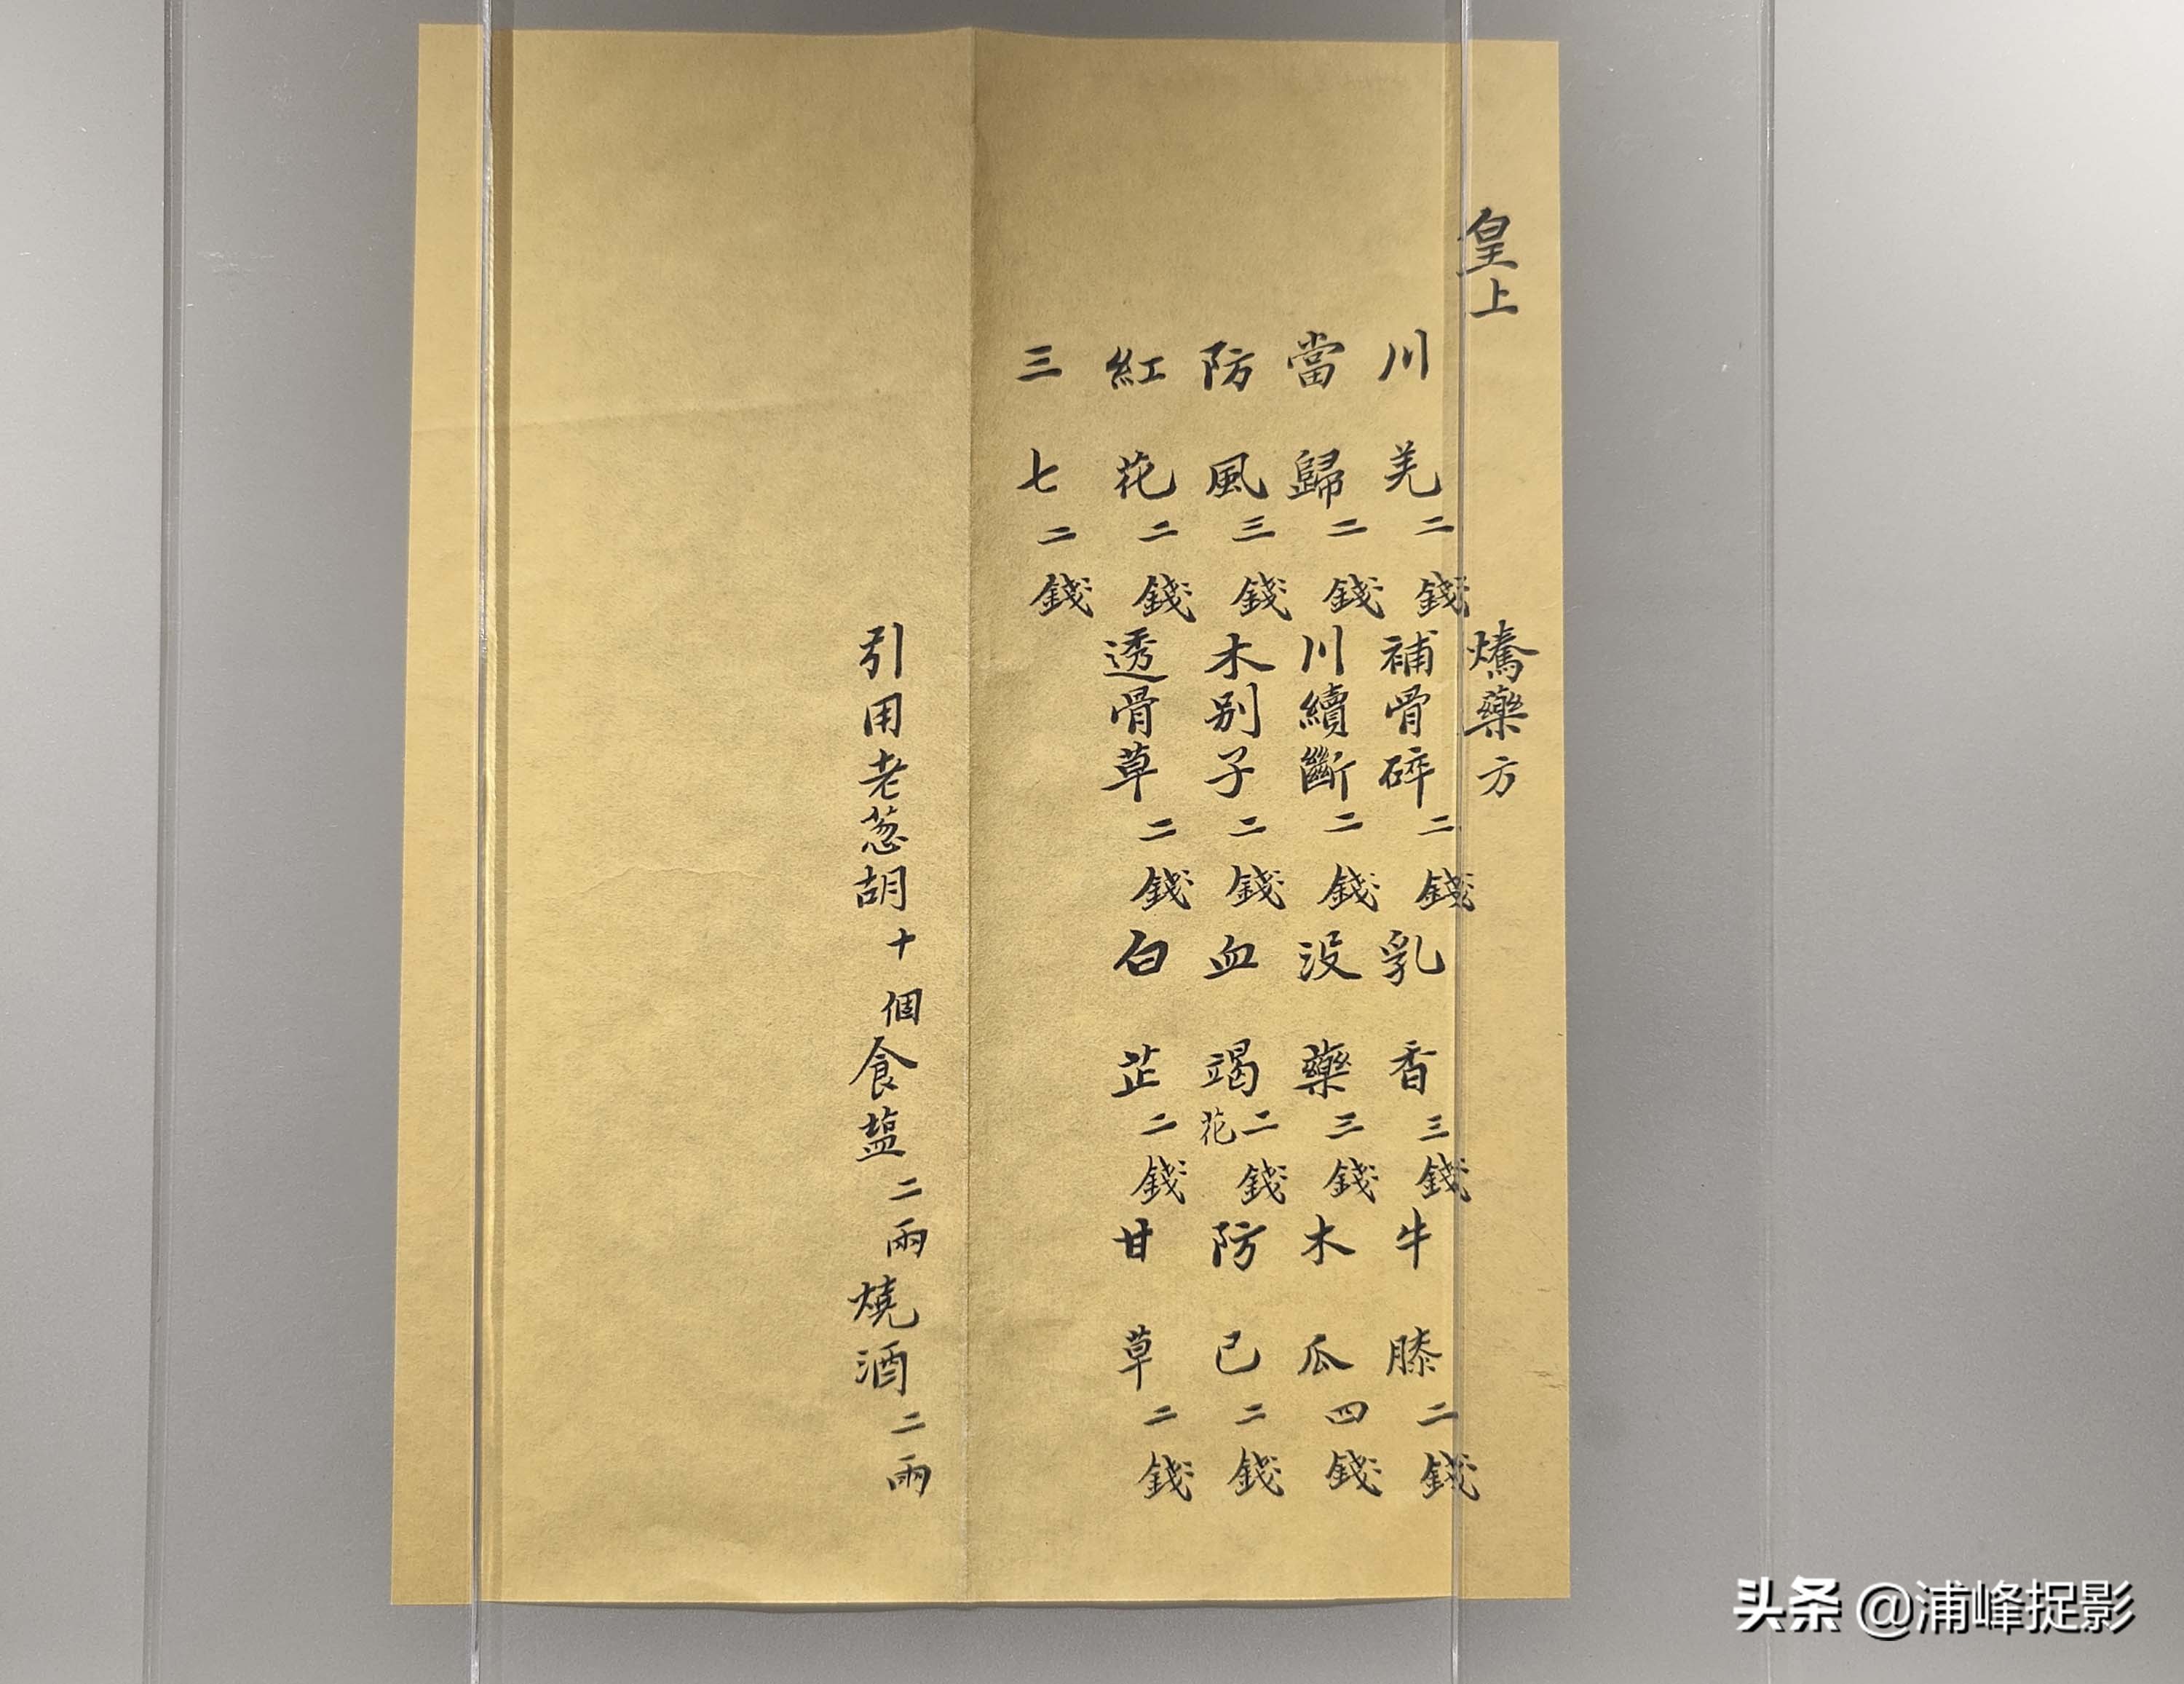 皇上 燆藥方
川羌二錢 補骨碎二錢 乳香三錢 牛膝二錢
當歸二錢 川續斷二錢 没藥三錢 木瓜四錢
防風三錢 木别子二錢 血竭花二錢 防已二錢
紅花二錢 透骨草二錢 白芷二錢 甘草二錢
三七二錢
引用老葱胡十個食塩二兩燒酒二兩
头条 @浦峰捉影